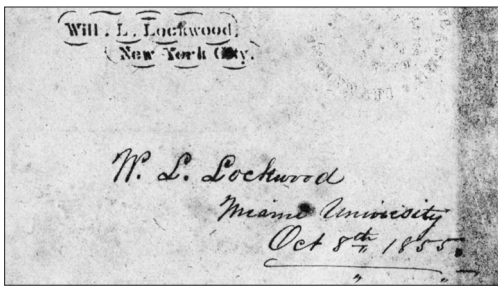 Will. L. Lockwood.
New York City.
W. L. Lockwood
Miami University
Oct 8th, 1855.
" "